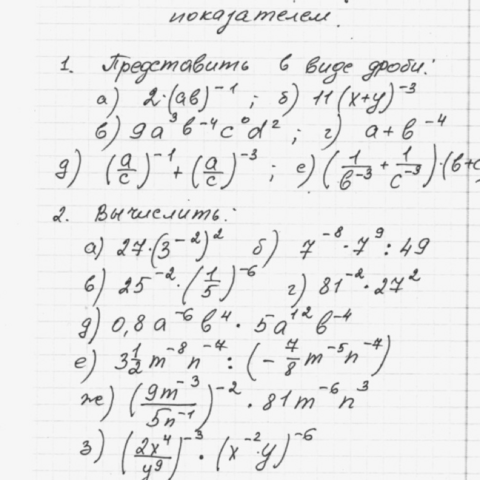 показателем.
1. Представить в виде дроби:
а) 2·(ab)⁻¹ ; б) 11(x+y)⁻³
в) 9a³b⁻⁴c⁰d² ; г) a+b⁻⁴
д) (a/c)⁻¹ + (a/c)⁻³ ; е) (1/b⁻³ + 1/c⁻³)·(b+c
2. Вычислить:
а) 27·(3⁻²)² б) 7⁻⁸·7⁹ : 49
в) 25⁻²·(1/5)⁻⁶ г) 81⁻²·27²
д) 0,8a⁻⁶b⁴ · 5a¹²b⁻⁴
е) 3 1/2 m⁻⁸n⁻⁴ : (− 7/8 m⁻⁵n⁻⁴)
же) (9m⁻³/5n⁻¹)⁻² · 81m⁻⁶n³
з) (2x⁴/y⁹)⁻³ · (x⁻²·y)⁻⁶